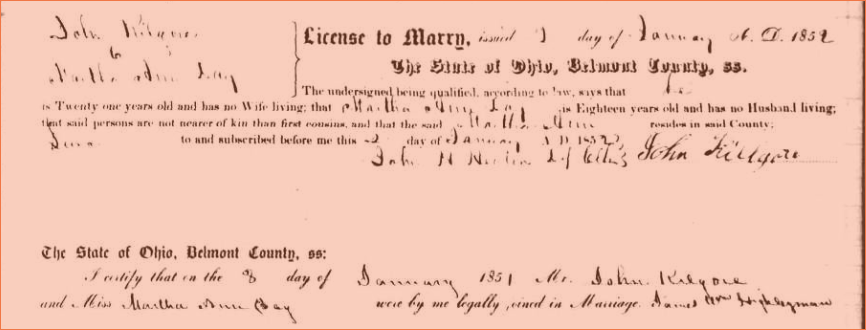 John Kilgore
to
Martha Ann Gay
License to Marry, issued 3 day of January A. D. 1852
The State of Ohio, Belmont County, ss.
The undersigned being qualified, according to law, says that he
is Twenty one years old and has no Wife living; that Martha Ann Gay is Eighteen years old and has no Husband living;
that said persons are not nearer of kin than first cousins, and that the said Martha Ann resides in said County;
to and subscribed before me this day of January A D 1852
John H John Killgore
The State of Ohio, Belmont County, ss:
I certify that on the 8 day of January 1851 Mr. John Kilgore
and Miss Martha Ann Gay were by me legally joined in Marriage. James